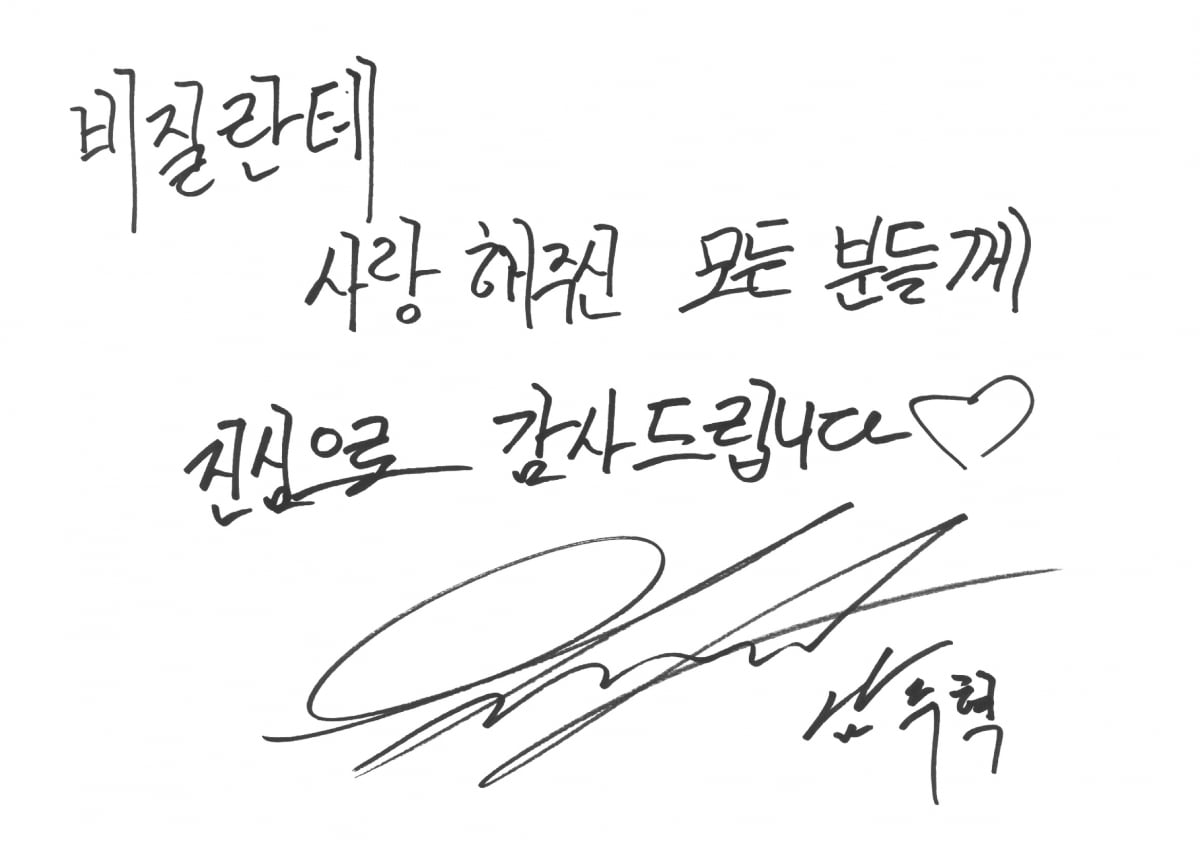 비질란테
사랑 해주신 모든 분들께
진심으로 감사드립니다♡